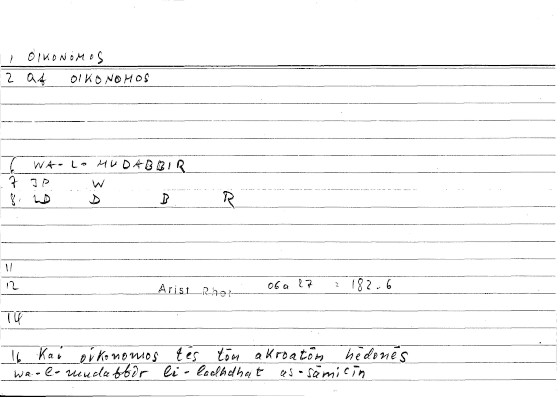 1 OIKONOMOS
2 a4 OIKONOMOS
6 WA-L-MUDABBIR
7 JP W
8. LD D B R
11
12 Arist Rhet 06a 27 = 182.6
14
16 Kai oikonomos tēs tōn akroatōn hēdonēs
wa-l-mudabbir li-ladhdhat as-sāmiʿīn